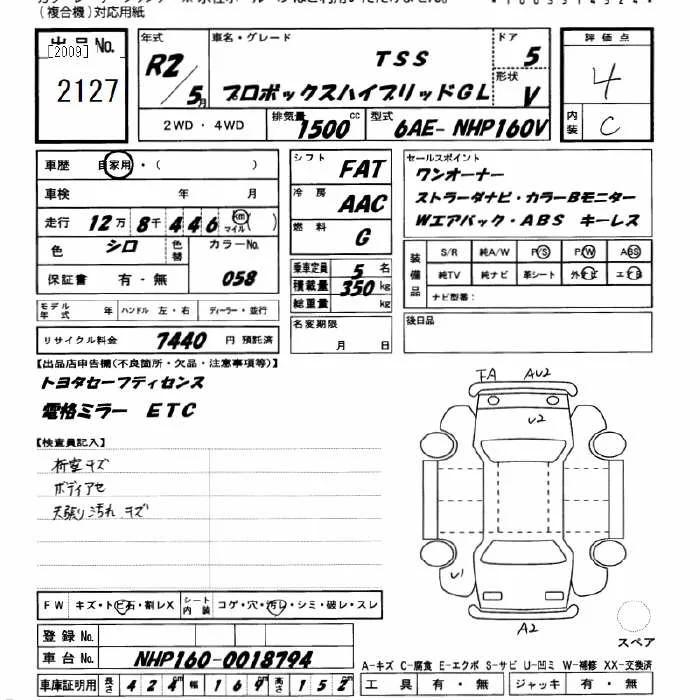 (複合機)対応用紙
出品No. [2009] 2127
年式 R2/5月 車名・グレード TSS プロボックスハイブリッドGL ドア 5 形状 V
2WD・4WD 排気量 1500cc 型式 6AE-NHP160V
評価点 4
内装 C
車歴 自家用・( )
車検 年 月
走行 12万8千446km マイル( )
色 シロ 色替 カラーNo. 058
保証書 有・無
シフト FAT
冷房 AAC
燃料 G
乗車定員 5名
積載量 350kg
総重量 kg
セールスポイント
ワンオーナー
ストラーダナビ・カラーBモニター
Wエアバック・ABS キーレス
装備品 S/R 純A/W P/S P/W ABS
純TV 純ナビ 革シート エアB
ナビ型番:
モデル年式 年 ハンドル 左・右 ディーラー・並行
名変期限 月 日
後日品
リサイクル料金 7440円 預託済
【出品店申告欄(不良箇所・欠品・注意事項等)】
トヨタセーフティセンス
電格ミラー ETC
【検査員記入】
桁室キズ
ボディアセ
天張り汚れ キズ
FA AU2
U2
U1
A2
スペア
FW キズ・トビ石・割レX シート内装 コゲ・穴・汚レ・シミ・破レ・スレ
登録No.
車台No. NHP160-0018794
A-キズ C-腐食 E-エクボ S-サビ U-凹ミ W-補修 XX-交換済
車庫証明用 長さ 424 幅 169 高さ 152 工具 有・無 ジャッキ 有・無